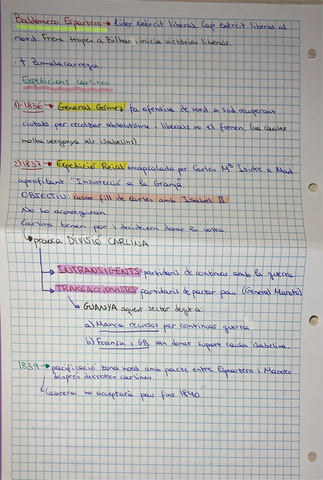 Baldomero Espartero → líder exèrcit liberal. Cap exèrcit liberal al
nord. Frena tropes a Bilbao i inicia victòries liberals.
· † Zumalacarregui.
Expedicions carlines
1)-1836 → General Gómez fa ofensiva de nord a sud recuperant
ciutats per recolzar absolutisme i liberals no el frenen (va causar
molta vergonya als isabelins)
2)-1837 → Expedició Reial encapçalada per Carles Mª Isidre a Mad
aprofitant "Insurecció a la Granja
OBJECTIU: casar fill de Carles amb Isabel II
No ho aconsegueixen
Carlins tenen por i decideixen donar la volta
↳ provoca DIVISIÓ CARLINA
→ INTRANSIGENTS: partidaris de continuar amb la guerra
→ TRANSACCIONISTES: partidaris de pactar pau (General Maroto)
↳ GUANYA aquest sector degut a:
a) Manca recursos per continuar guerra
b) França i GB van donar suport causa isabelina.
1839 → pacificació zona nord amb pacte entre Espartero i Maroto
després derrotes carlines.
↳ Cabrera no acceptarà pau fins 1840